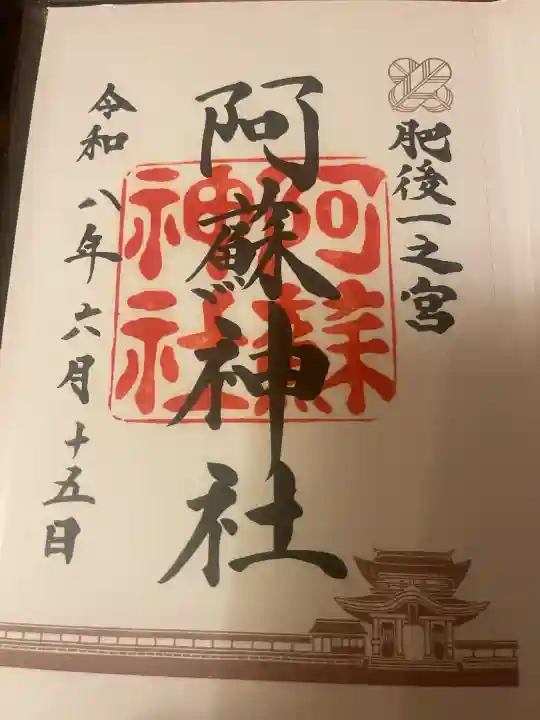 肥後一之宮
阿蘇神社
阿蘇神社
令和八年六月十五日